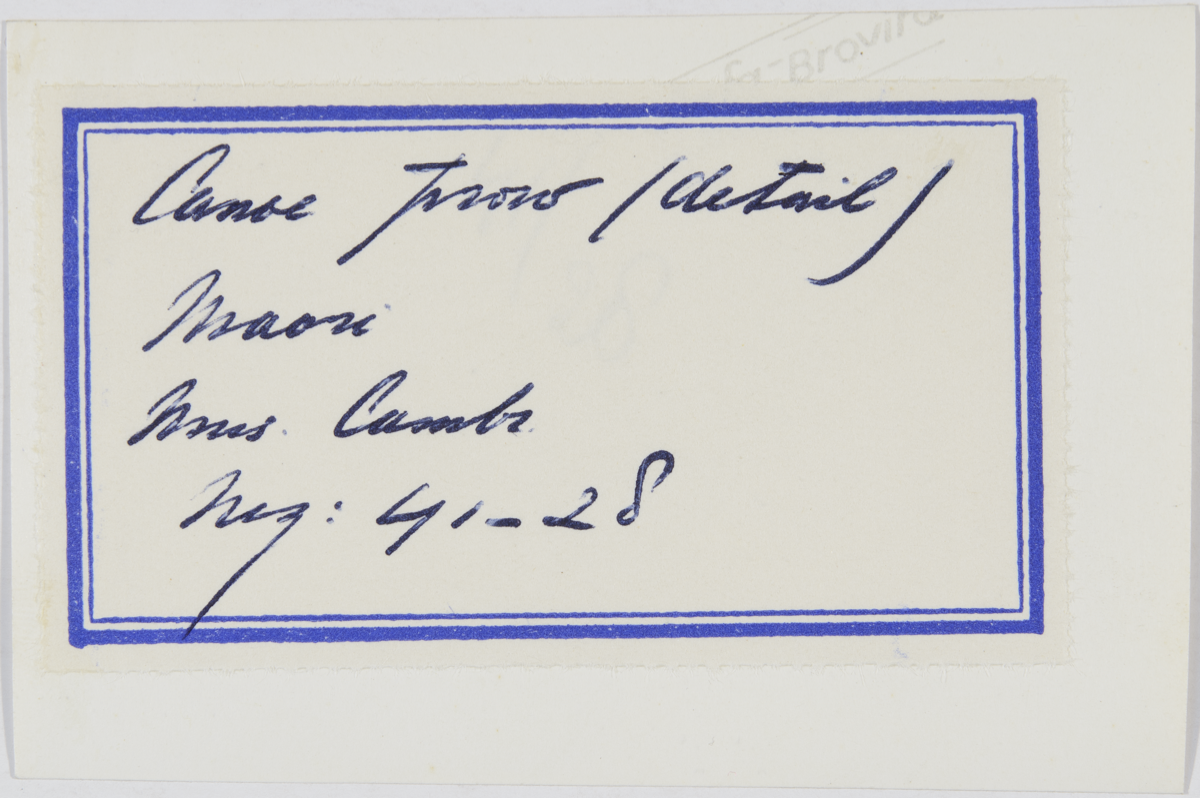 fa-Brovira
Canoe prow (detail)
Maori
Mus. Camb.
Neg: 41-28